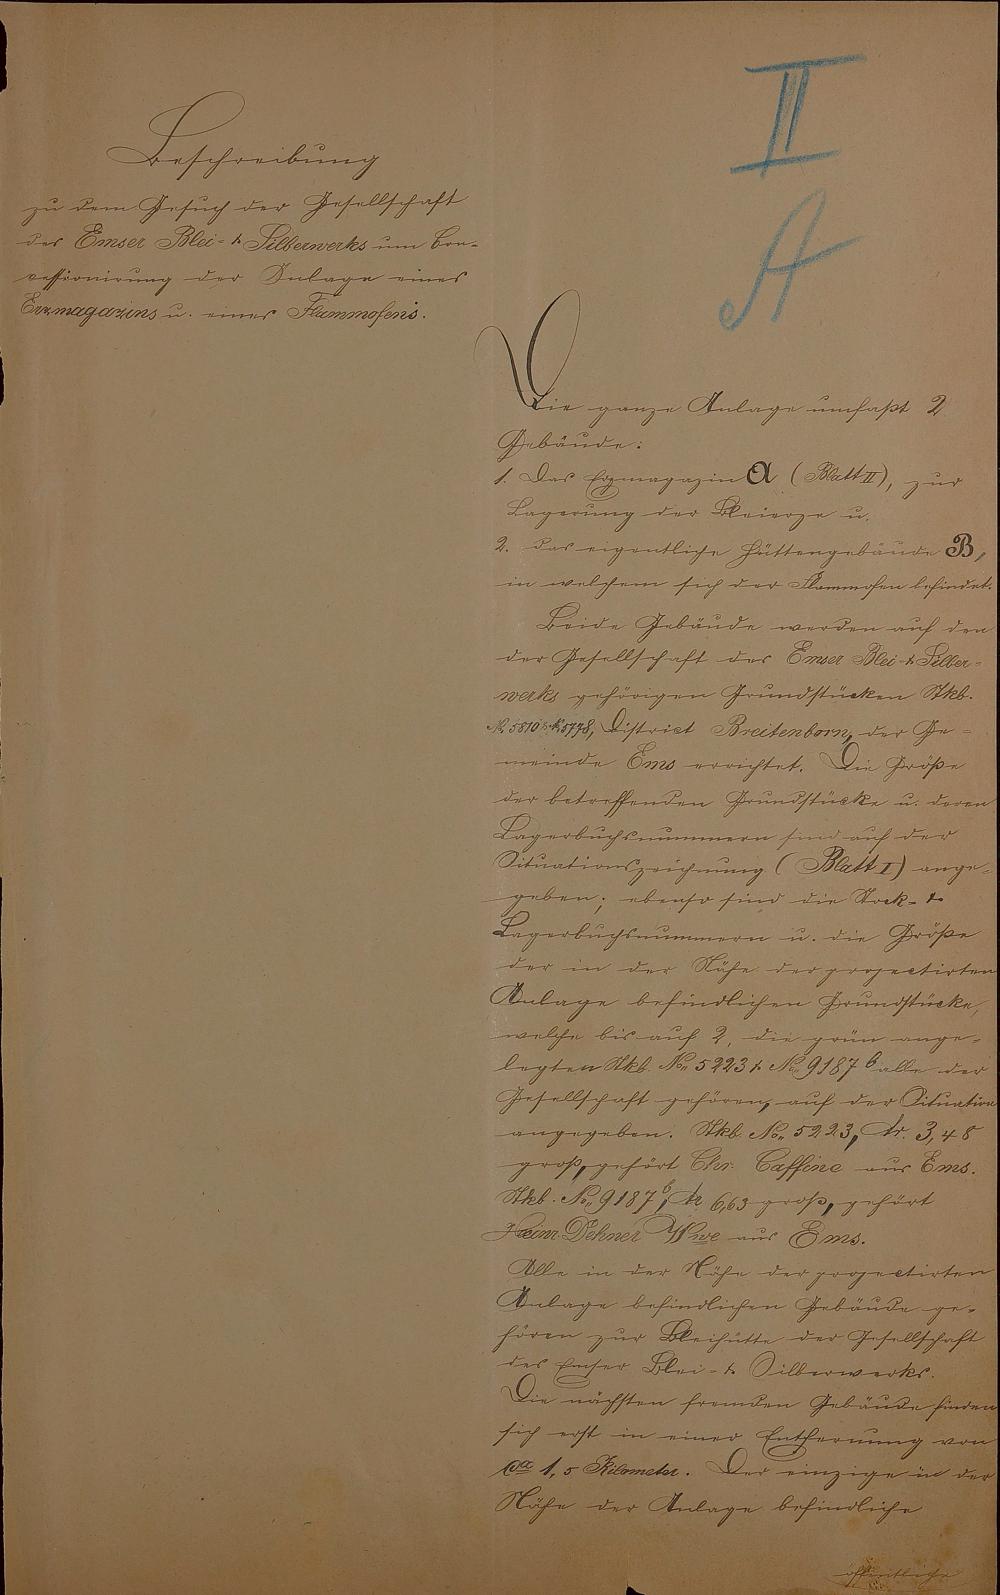 Beschreibung
zu dem Gesuch der Gesellschaft
des Emser Blei- & Silberwerks um Con-
cessionirung der Anlage eines
Erzmagazins u. eines Flammofens.
II
A
Die ganze Anlage umfaßt 2
Gebäude:
1. Das Erzmagazin A (Blatt II), zur
Lagerung der Bleierze u.
2. das eigentliche Hüttengebäude B,
in welchem sich der Flammofen befindet.
Beide Gebäude werden auf den
der Gesellschaft des Emser Blei- & Silber-
werks gehörigen Grundstücken Stkb.
No. 5810 & No. 5778, District Breitenborn, der Ge-
meinde Ems errichtet. Die Größe
der betreffenden Grundstücke u. deren
Lagerbuchsnummern sind auf der
Situationszeichnung (Blatt I) ange-
geben; ebenso sind die Stock- &
Lagerbuchsnummern u. die Größe
der in der Nähe der projectirten
Anlage befindlichen Grundstücke,
welche bis auf 2, die grün ange-
legten Stkb. No. 5223 & No. 9187 b alle der
Gesellschaft gehören, auf der Situation
angegeben. Stkb. No. 5223, Ar. 3,48
groß, gehört Chr. Caffine aus Ems.
Stkb. No. 9187 b, Ar 6,63 groß, gehört
Heinr. Dehner Wwe aus Ems.
Alle in der Nähe der projectirten
Anlage befindlichen Gebäude ge-
hören zur Bleihütte der Gesellschaft
des Emser Blei- & Silberwerks.
Die nächsten fremden Gebäude finden
sich erst in einer Entfernung von
ca 1,5 Kilometer. Der einzige in der
Nähe der Anlage befindliche
öffentliche